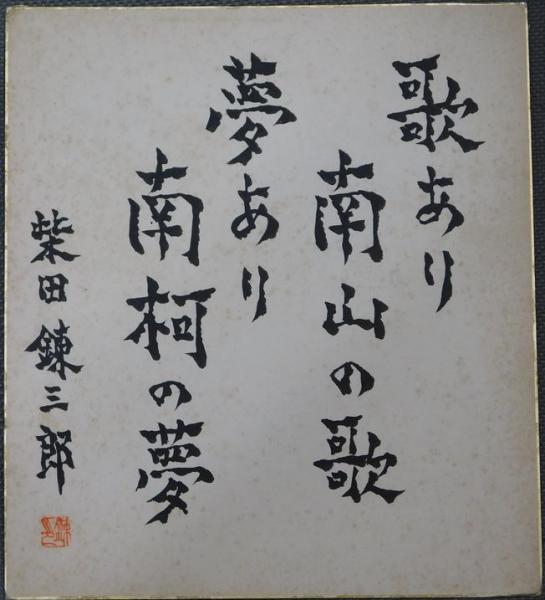 歌あり
南山の歌
夢あり
南柯の夢
柴田錬三郎